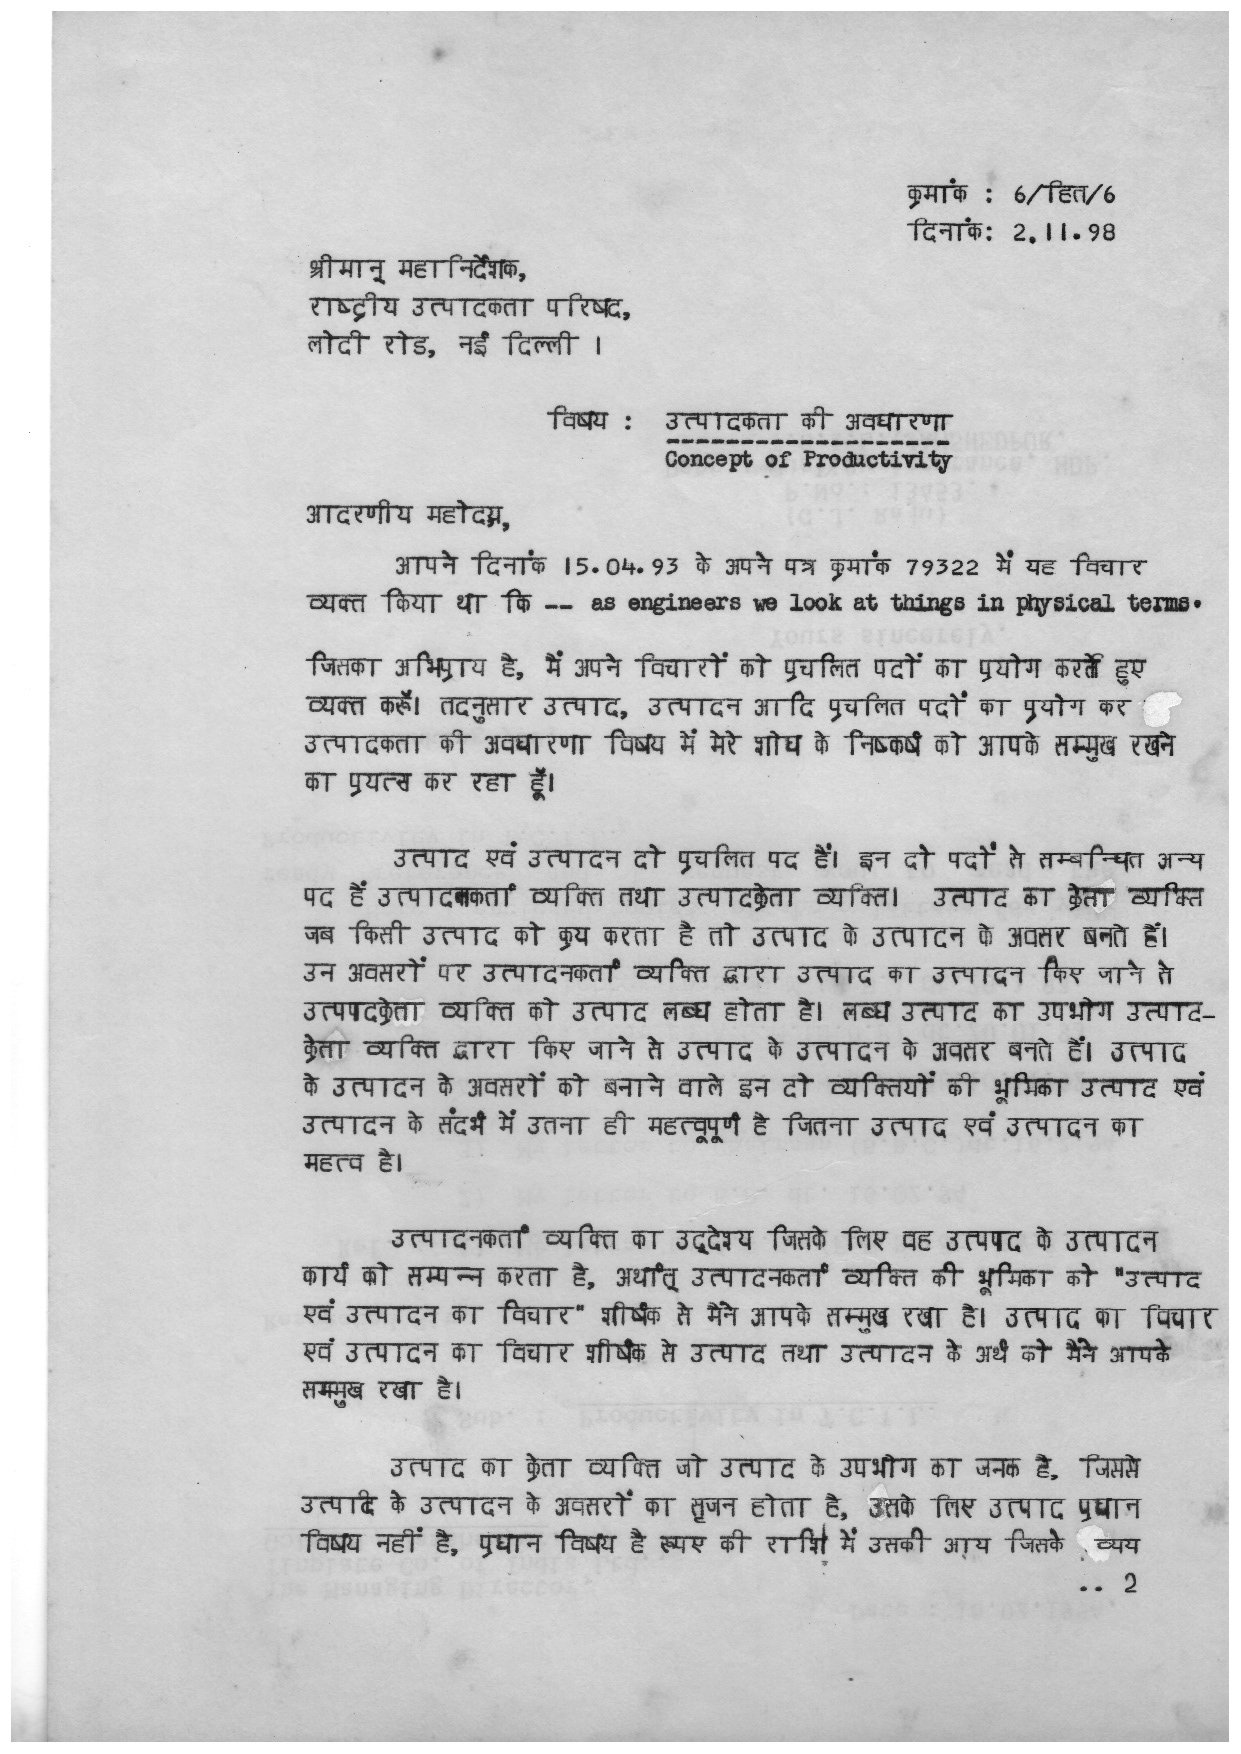 क्रमांक : 6/हित/6
दिनांक: 2.11.98
श्रीमान् महानिर्देशक,
राष्ट्रीय उत्पादकता परिषद,
लोदी रोड, नई दिल्ली ।
विषय : उत्पादकता की अवधारणा
Concept of Productivity
आदरणीय महोदय,
आपने दिनांक 15.04.93 के अपने पत्र क्रमांक 79322 में यह विचार
व्यक्त किया था कि -- as engineers we look at things in physical terms.
जिसका अभिप्राय है, मैं अपने विचारों को प्रचलित पदों का प्रयोग करते हुए
व्यक्त करूँ। तदनुसार उत्पाद, उत्पादन आदि प्रचलित पदों का प्रयोग कर
उत्पादकता की अवधारणा विषय में मेरे शोध के निष्कर्ष को आपके सम्मुख रखने
का प्रयत्न कर रहा हूँ।
उत्पाद एवं उत्पादन दो प्रचलित पद हैं। इन दो पदों से सम्बन्धित अन्य
पद हैं उत्पादनकर्ता व्यक्ति तथा उत्पादक्रेता व्यक्ति। उत्पाद का क्रेता व्यक्ति
जब किसी उत्पाद को क्रय करता है तो उत्पाद के उत्पादन के अवसर बनते हैं।
उन अवसरों पर उत्पादनकर्ता व्यक्ति द्वारा उत्पाद का उत्पादन किए जाने से
उत्पपदक्रेता व्यक्ति को उत्पाद लब्ध होता है। लब्ध उत्पाद का उपभोग उत्पाद-
क्रेता व्यक्ति द्वारा किए जाने से उत्पाद के उत्पादन के अवसर बनते हैं। उत्पाद
के उत्पादन के अवसरों को बनाने वाले इन दो व्यक्तियों की भूमिका उत्पाद एवं
उत्पादन के संदर्भ में उतना ही महत्वूपूर्ण है जितना उत्पाद एवं उत्पादन का
महत्व है।
उत्पादनकर्ता व्यक्ति का उद्देश्य जिसके लिए वह उत्पपद के उत्पादन
कार्य को सम्पन्न करता है, अर्थात् उत्पादनकर्ता व्यक्ति की भूमिका को "उत्पाद
एवं उत्पादन का विचार" शीर्षक से मैंने आपके सम्मुख रखा है। उत्पाद का विचार
एवं उत्पादन का विचार शीर्षक से उत्पाद तथा उत्पादन के अर्थ को मैंने आपके
सममुख रखा है।
उत्पाद का क्रेता व्यक्ति जो उत्पाद के उपभोग का जनक है, जिससे
उत्पाद के उत्पादन के अवसरों का सृजन होता है, उसके लिए उत्पाद प्रधान
विषय नहीं है, प्रधान विषय है रूपए की राशि में उसकी आय जिसके व्यय
.. 2